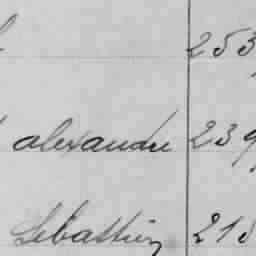 253
alexandre 239
Sebastien 215